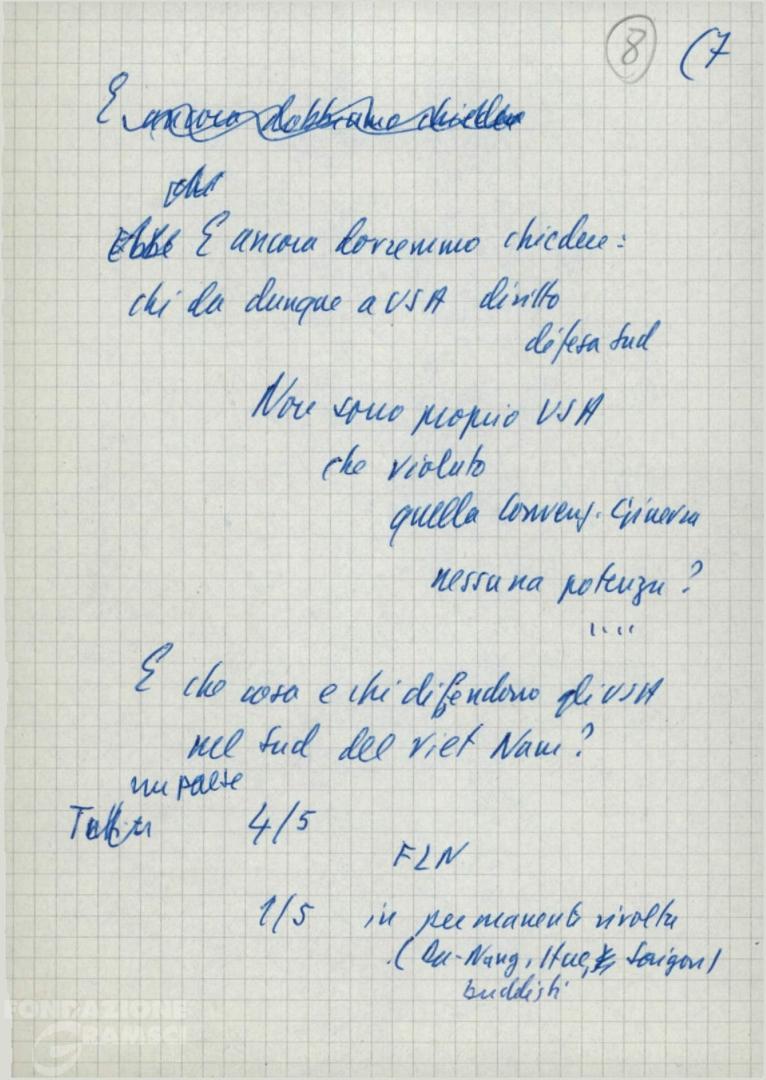 8 (7
E ancora dobbiamo chiedere
che
Ebbe E ancora dovremmo chiedere:
chi da dunque a USA diritto
difesa Sud
Non sono proprio USA
che violato
quella Conveng. Ginevra
nessuna potenza?
....
E che cosa e chi difendono gli USA
nel Sud del Viet Nam?
un paese
4/5
FLN
1/5 in permanente rivolta
(Da-Nang, Hue, Saigon)
buddisti
FONDAZIONE
GRAMSCI